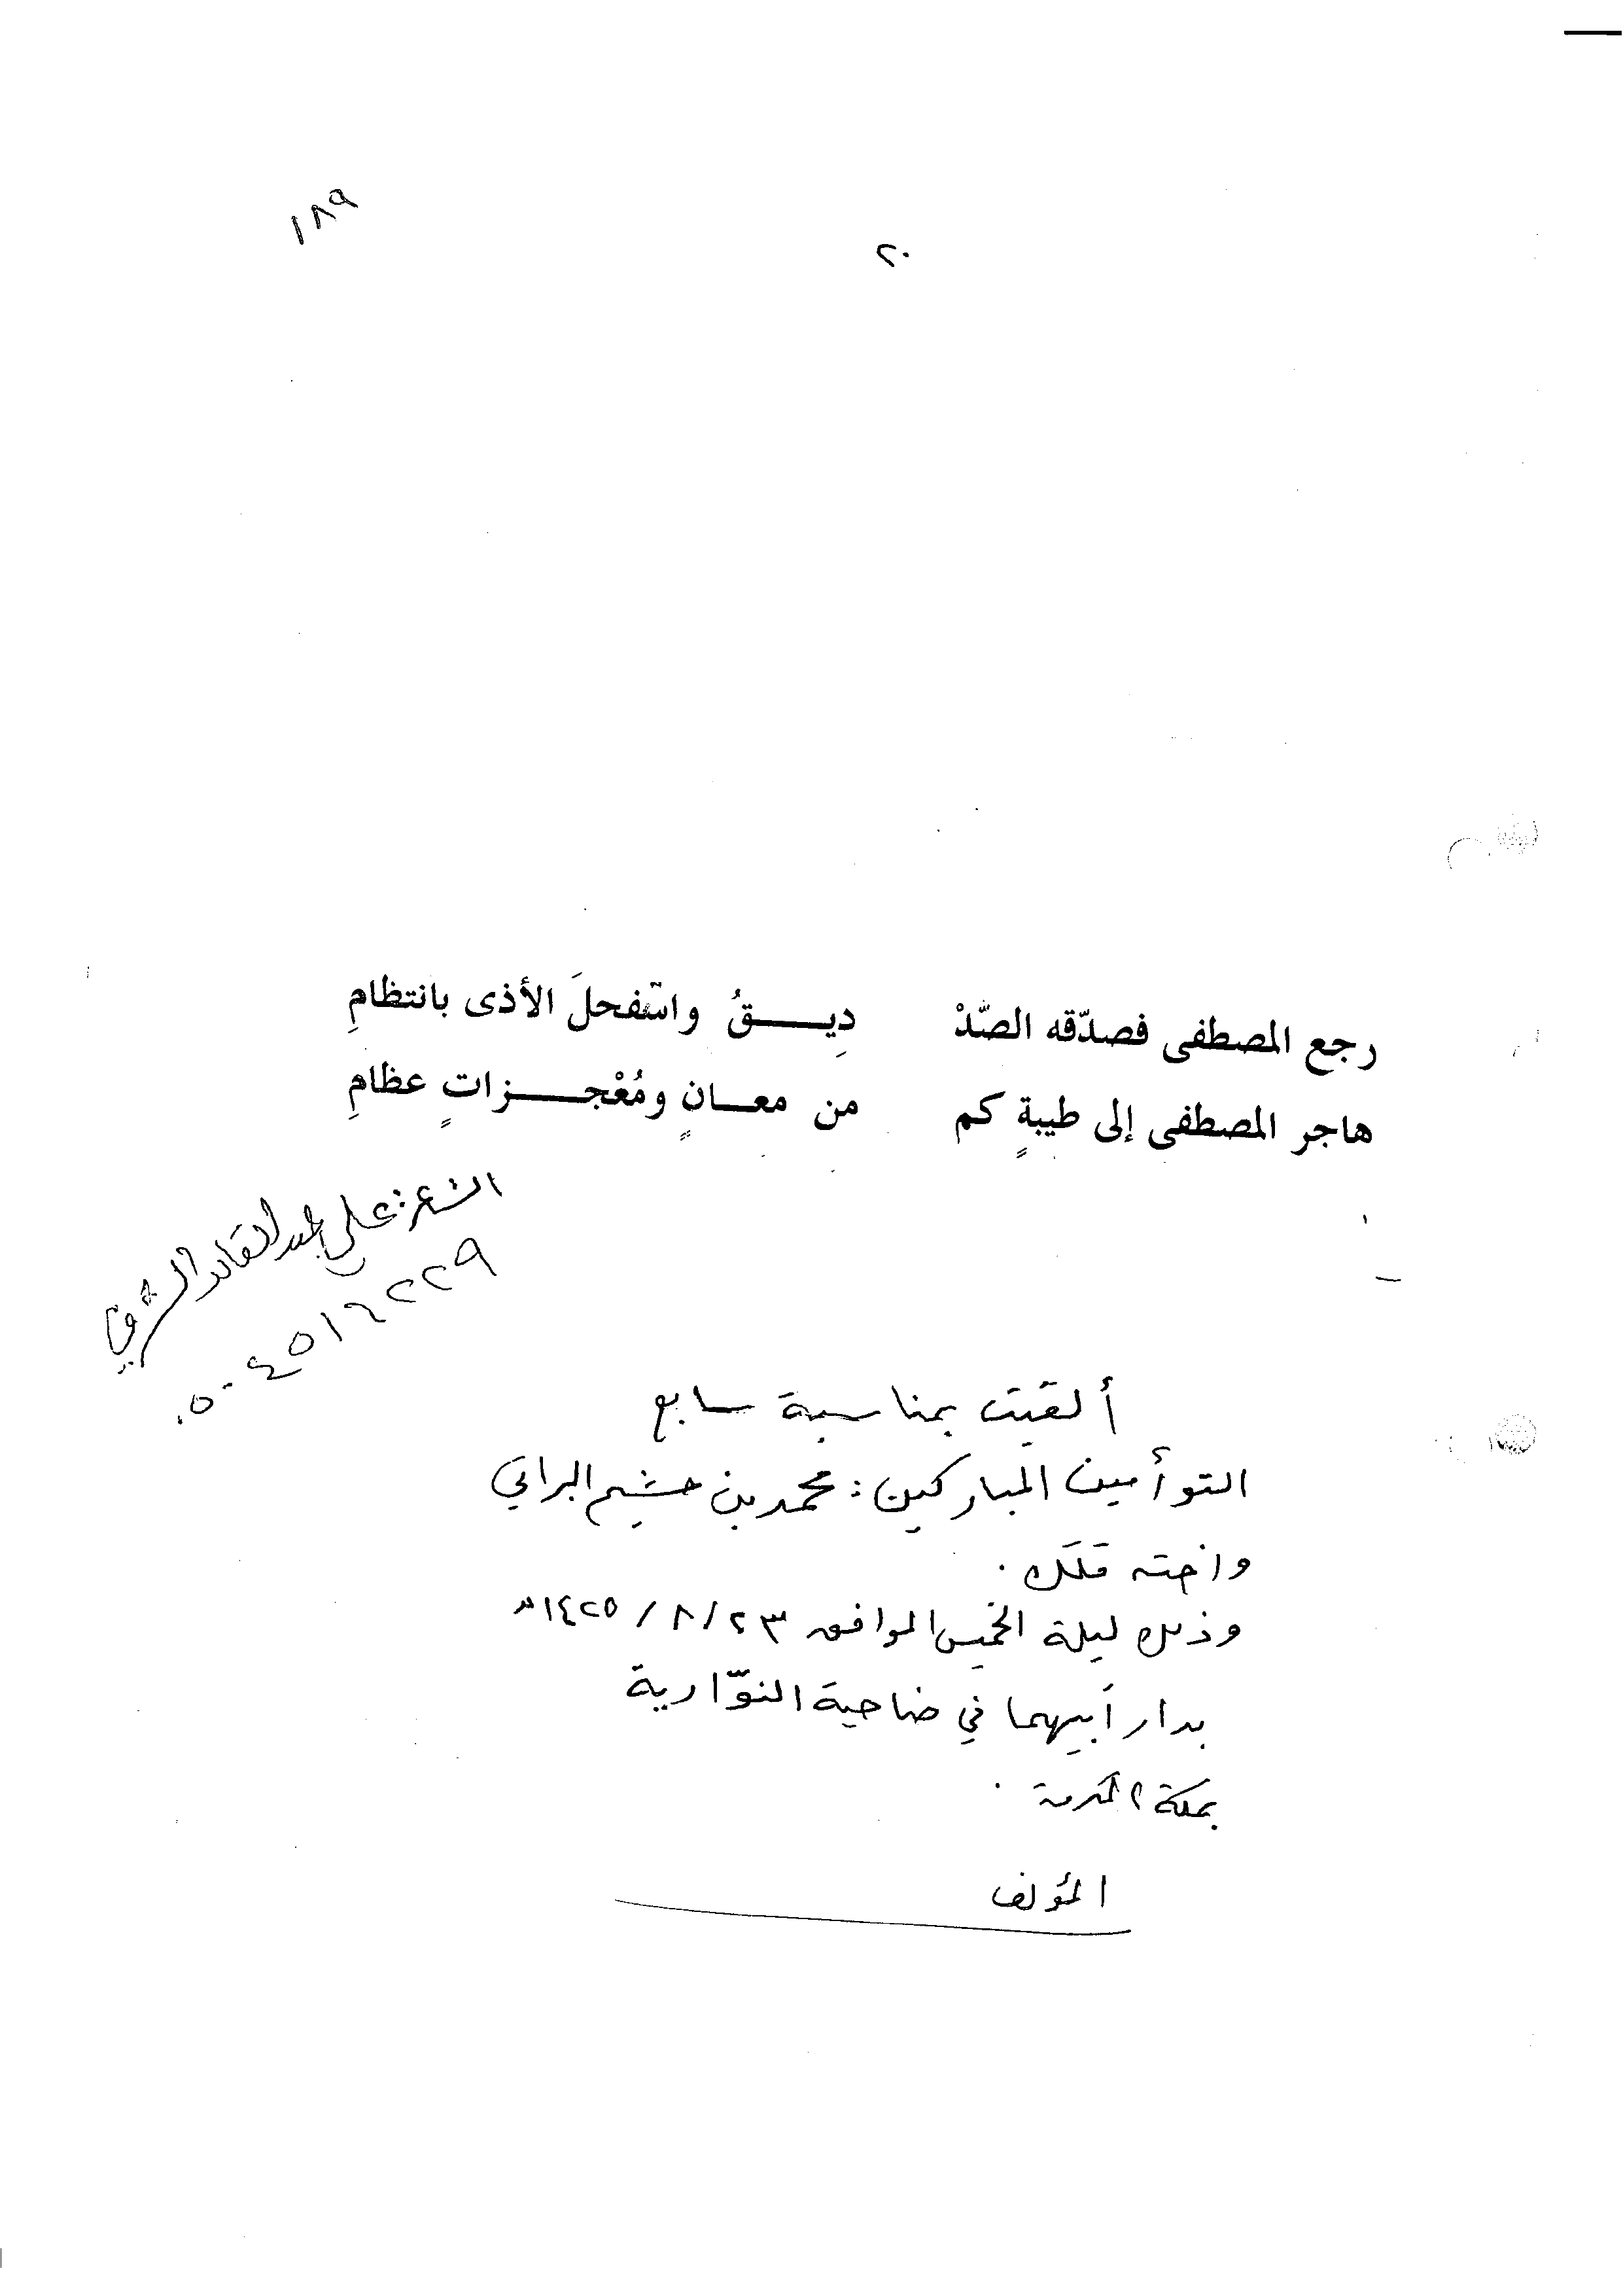 ١٨٩
٢٠
رجع المصطفى فصدّقه الصّدْ دِيـــــقُ واسْتفحلَ الأذى بانتظامِ
هاجر المصطفى إلى طيبةٍ كم من معـــانٍ ومُعْجـــــزاتٍ عظامِ
الشاعر: علي عبد القادر
٠٥٠٤٥١٦٢٢٩
ألقيت بمناسبة سابع
التوأمين المباركين: محمد بن البراتي
واخته مَلَك.
وذلك ليلة الخميس الموافق ٢٣ / ٨ / ١٤٢٥ هـ
بدار أبيهما في ضاحية النوّارية
بمكة المكرمة.
المؤلف